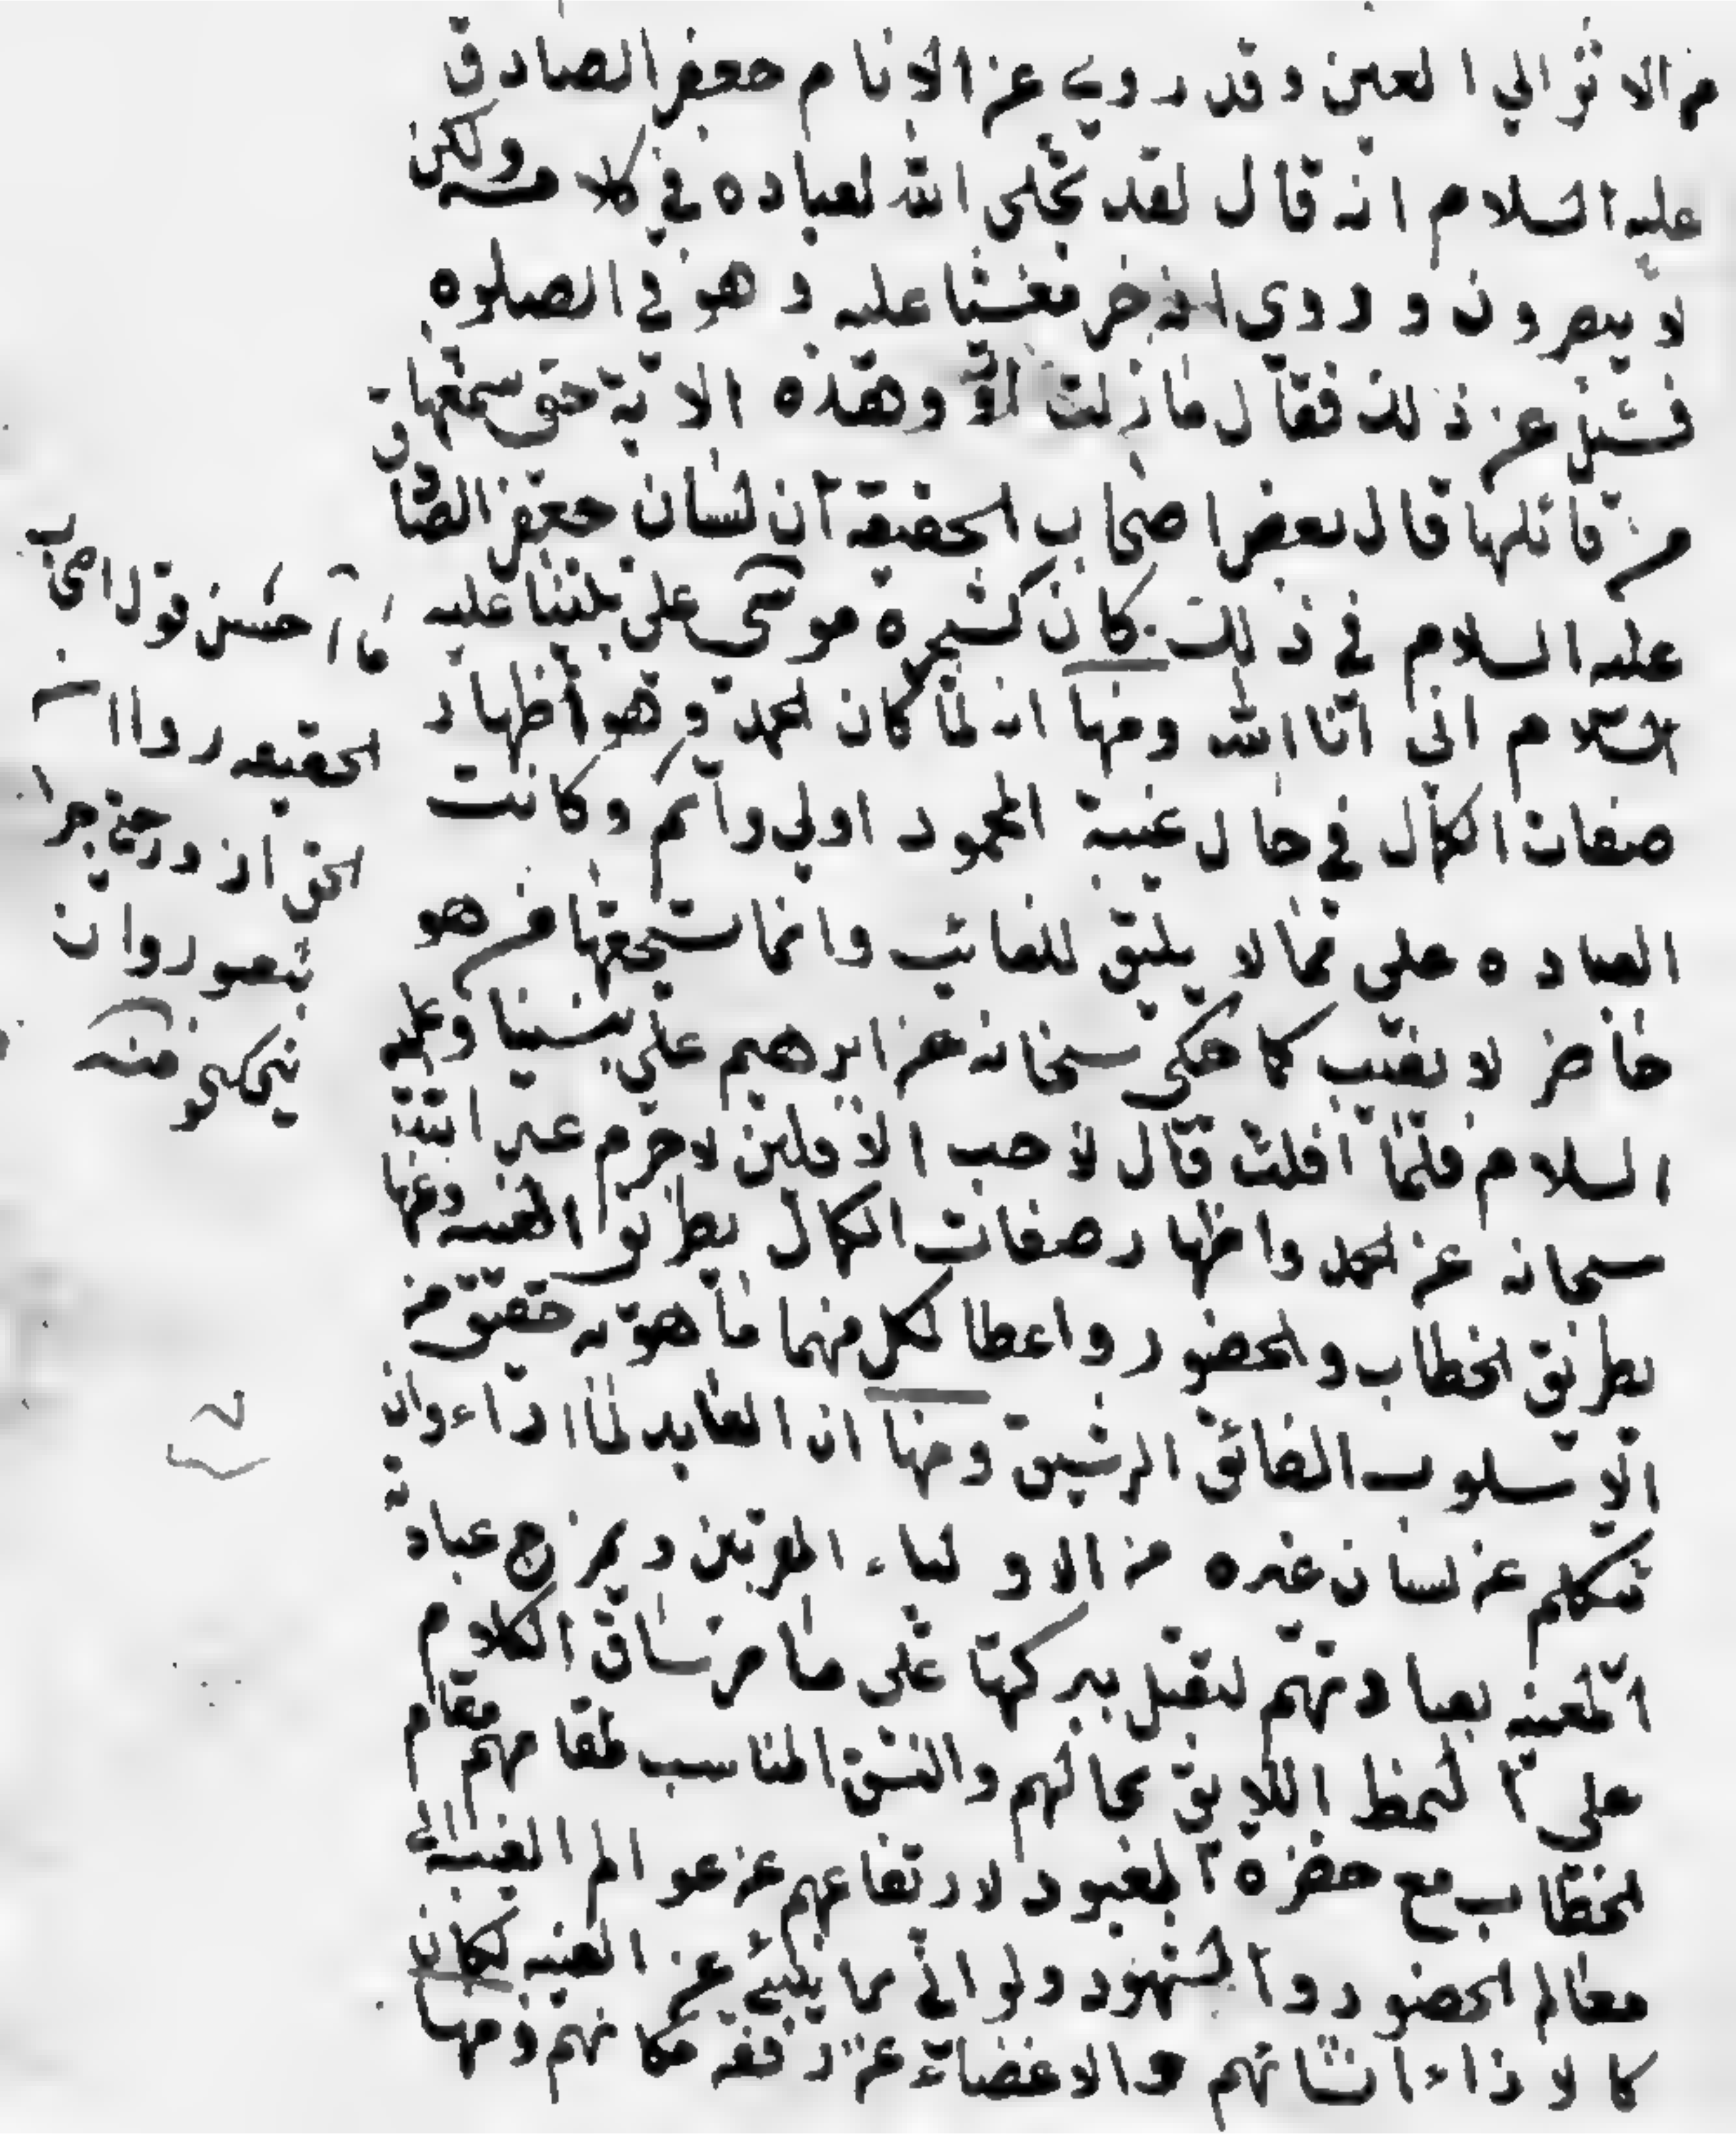 من الاثر الي العين وقد روي عن الانام جعفر الصادق
عليه السلام انه قال لقد تجلى الله لعباده في كلامه ولكن
لا يبصرون وروي انه خر مغشيا عليه وهو في الصلوه
فسئل عن ذلك فقال ما زلت اردد هذه الاية حتى سمعتها
من قائلها قال بعض اصحاب الحقيقة ان لسان جعفر الصادق
عليه السلام في ذلك كان كشجرة موسى على نبينا عليه
السلام اني انا الله ومنها انه لما كان الحمد وهو اظهار
صفات الكمال في حال غيبة المحمود اولي واتم وكانت
العباده علي مما لا يليق للغائب وانما يستحقها من هو
حاضر لا يغيب كما حكى سبحانه عن ابرهيم علي نبينا وعليه
السلام فلما افلت قال لا احب الافلين لا جرم عبر الله
سبحانه عن الحمد واظهار صفات الكمال بطريق الغيبه وعنها
بطريق الخطاب والحضور واعطا لكل منهما ما هو به حقيق من
الاسلوب الفائق الرشيق ومنها ان العابد لما اراد ان
يتكلم عن لسان غيره من الاولياء المقربين ويمزج عبادته
المعيبه بعبادتهم ليقبل ببركتها على ما مر ساق الكلام
علي النمط اللايق بحالهم والنسق المناسب لمقامهم مقام
الخطاب مع حضرة المعبود لارتفاعهم عن عوالم الغيبة الى
معالم الحضور والشهود ولو اتي بما ينبئ عن الغيبه لكان
كالازراء بشانهم والاغضاء عن رفعة مكانهم ومنها
ما احسن قول اصحاب
الحقيقه روا
الحق از درختي چرا
نبود روا از
نيكبختي منه